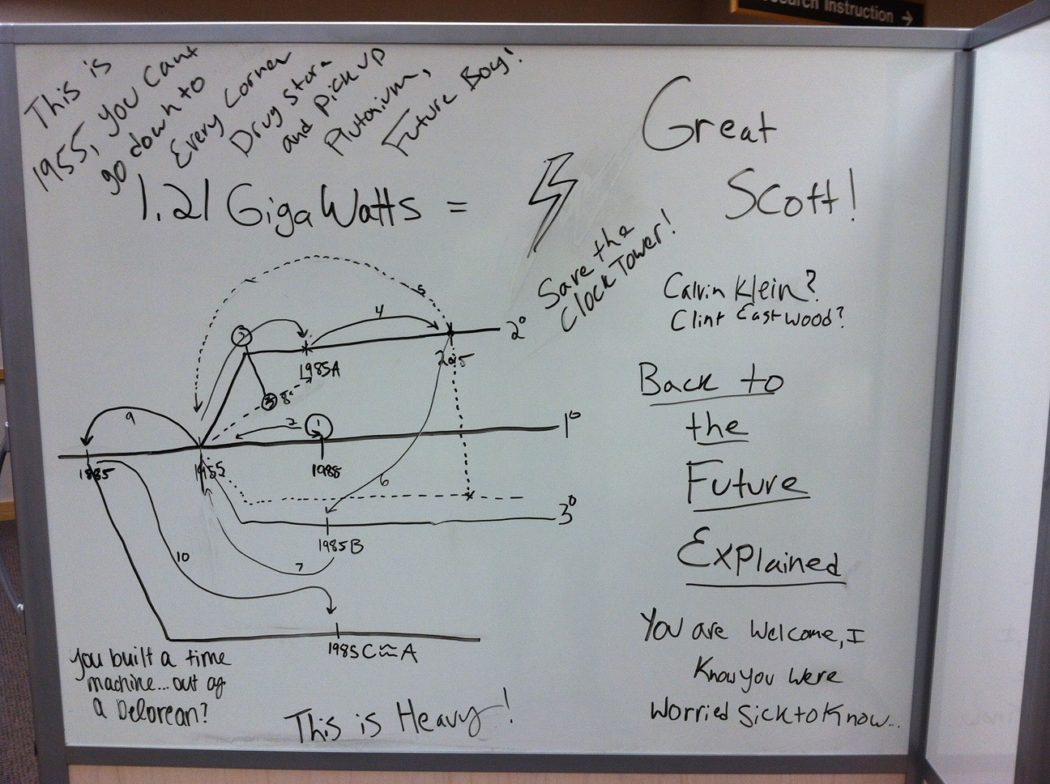 search Instruction →
This is
1955, you can't
go down to
Every Corner
Drug store
and Pick up
Plutonium,
Future Boy!
1.21 GigaWatts =
Great
Scott!
Save the
Clock Tower!
Calvin Klein?
Clint Eastwood?
Back to
the
Future
Explained
You are welcome, I
Know you were
Worried Sick to Know...
5
4
2°
1985A
2015
3
8
9
2
1
1°
1885
1955
1985
6
3°
1985B
7
10
1985C≈A
you built a time
machine...out of
a Delorean?
This is Heavy!